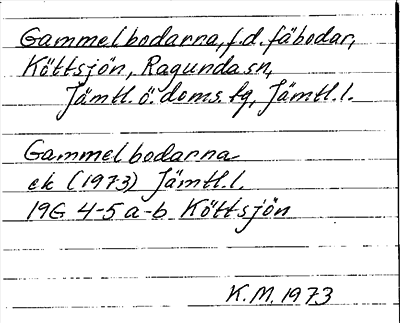 Gammelbodarna, f.d. fäbodar,
Köttsjön, Ragunda sn,
Jämtl. ö. doms. fg, Jämtl. l.
Gammelbodarna
ek (1973) Jämtl. l.
19G 4-5 a-b Köttsjön
K.M. 1973